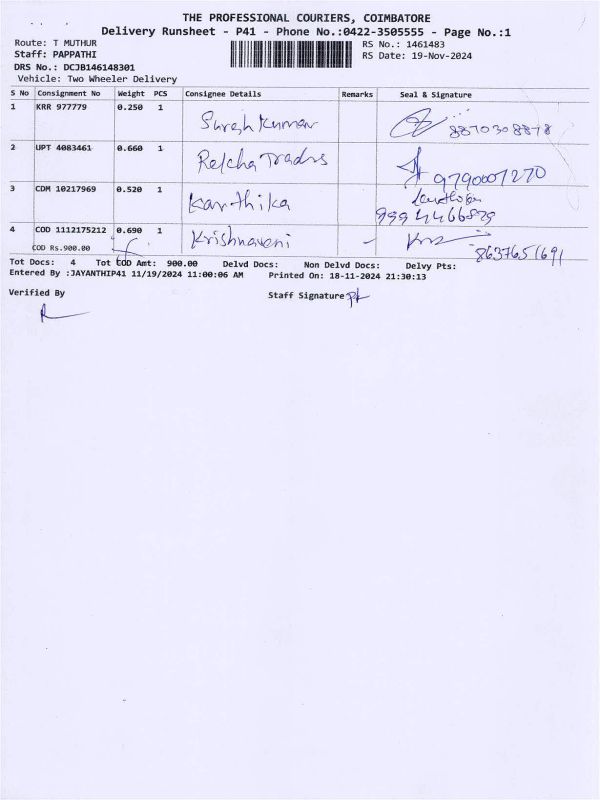 THE PROFESSIONAL COURIERS, COIMBATORE
Delivery Runsheet - P41 - Phone No.:0422-3505555 - Page No.:1
Route: T MUTHUR RS No.: 1461483
Staff: PAPPATHI RS Date: 19-Nov-2024
DRS No.: DCJB146148301
Vehicle: Two Wheeler Delivery
S No Consignment No Weight PCS Consignee Details Remarks Seal & Signature
1 KRR 977779 0.250 1 Suresh Kumar 8870308878
2 UPT 4083461 0.660 1 Rekha Traders 9790007270
3 CDM 10217969 0.520 1 Karthika
9994466879
4 COD 1112175212 0.690 1 Krishnaveni - 8637651691
COD Rs.900.00
Tot Docs: 4 Tot COD Amt: 900.00 Delvd Docs: Non Delvd Docs: Delvy Pts:
Entered By :JAYANTHIP41 11/19/2024 11:00:06 AM Printed On: 18-11-2024 21:30:13
Verified By Staff Signature